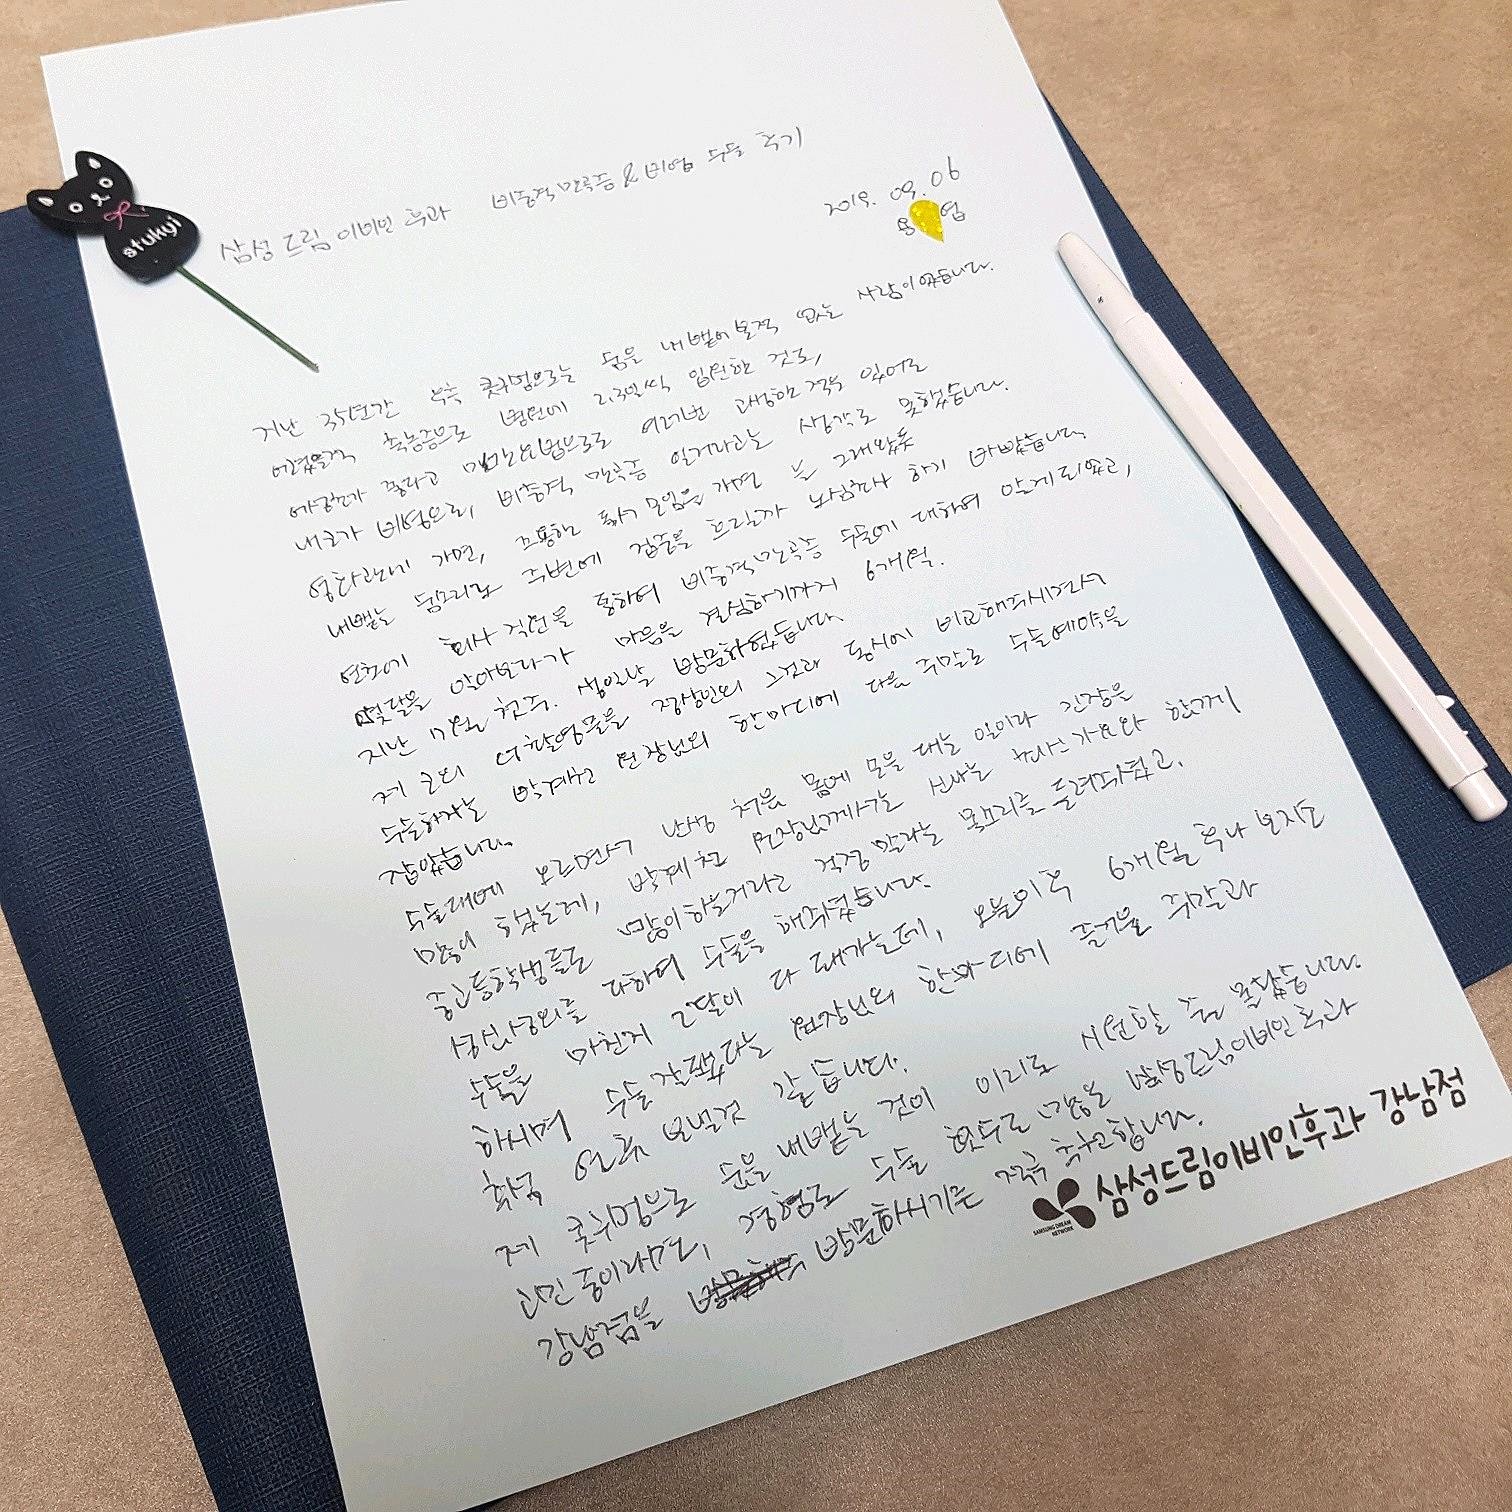 삼성드림이비인후과 비중격만곡증 & 비염 수술 후기
2019. 09. 06
stuhyi
지난 35년간 콧구멍으로는 숨을 내뱉어본적 없는 사람이었습니다.
어렸을적 축농증으로 병원에 2,3일씩 입원한 것도,
여러번 고생한 적도 있어도
내 코가 비염으로, 비중격 만곡증 일거라고는 생각도 못했습니다.
영화관에 가면, 조용한 회사 모임을 가면 늘 그래왔듯
내뱉는 숨소리로 주변에 집중을 흐릴까 노심초사 하기 바빴습니다.
연초에 회사 직원을 통하여 비중격만곡증 수술에 대하여 알게되었고,
몇달을 알아보다가 마음을 결심하기까지 6개월.
지난 7월 첫주. 생일날 방문하였습니다.
제 코의 촬영물을 정상인의 그것과 동시에 비교해주시면서
수술하자는 박계천 원장님의 한마디에 다음 주말로 수술예약을
잡았습니다.
수술대에 오르면서 난생 처음 몸에 칼을 대는 일이라 긴장을
많이 했는데, 박계천 원장님께서는 신나는 댄스가요와 함께
중고등학생들도 많이하는거라고 걱정말라는 목소리를 들려주셨고.
성심성의를 다하여 수술을 해주셨습니다.
수술을 마친지 2달이 다 돼가는데, 오늘이후 6개월 후나 보자고
하시며 수술 잘됐다는 원장님의 한마디에 즐거운 주말과
추석 연휴 보낼것 같습니다.
제 콧구멍으로 숨을 내뱉는 것이 이리도 시원할 줄은 몰랐습니다.
고민중이라면, 경험도 수술 환수도 많은 삼성드림이비인후과
강남점을 방문하시기를 적극 추천합니다.
삼성드림이비인후과 강남점
SAMSUNG DREAM
NETWORK